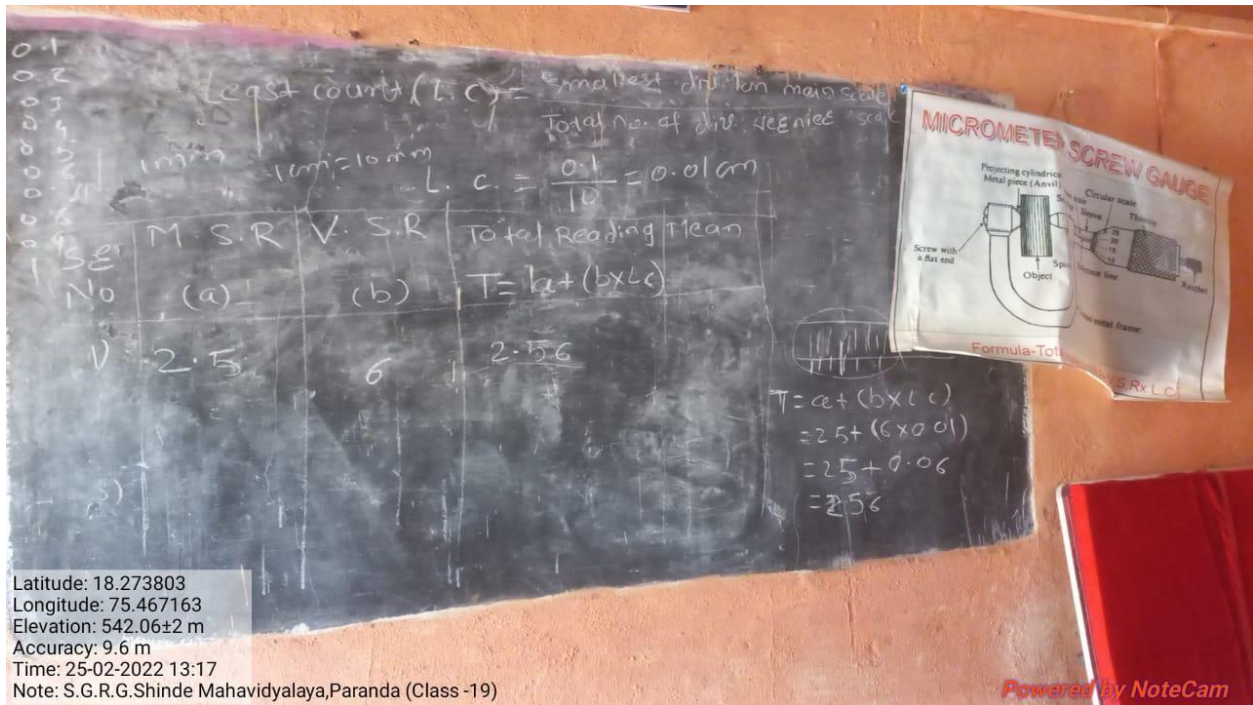 0.1
0.2
Least count (L.C) = Smallest div. on main scale
Total no. of div. vernier scale
1mm 1cm = 10mm
L. C. = 0.1 / 10 = 0.01cm
SE No
M S.R (a)
V. S.R (b)
Total Reading T = a + (b x Lc)
Mean
1) 2.5 6 2.56
2)
T = a + (b x L c)
= 2.5 + (6 x 0.01)
= 2.5 + 0.06
= 2.56
MICROMETER SCREW GAUGE
Projecting cylindrical
Metal piece (Anvil)
Circular scale
Sleeve
Thimble
Screw with
a flat end
Object
Ratchet
metal frame
Formula-Tot
S.Rx L.C
Latitude: 18.273803
Longitude: 75.467163
Elevation: 542.06±2 m
Accuracy: 9.6 m
Time: 25-02-2022 13:17
Note: S.G.R.G.Shinde Mahavidyalaya,Paranda (Class -19)
Powered by NoteCam